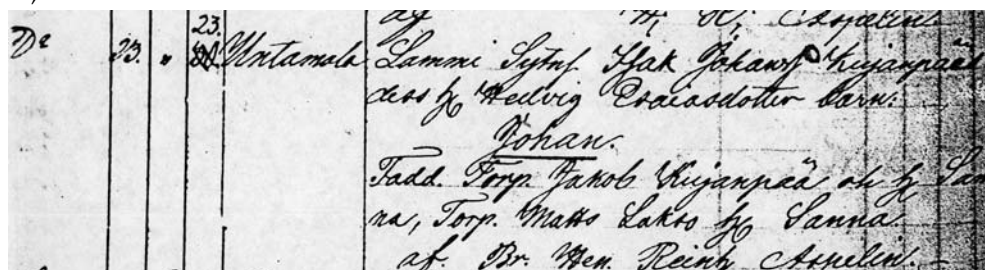 af H. R. Aspelin
23.
Dº 23. " Untamala Lammi Sytnf. Isak Johansf Kujanpää
dess h Hedvig Esaiasdotter barn:
Johan.
Fadd. Torp. Jakob Kujanpää oh h San
na, Torp. Matts Lakso h Sanna
af. Br. Hen. Reinh Aspelin.